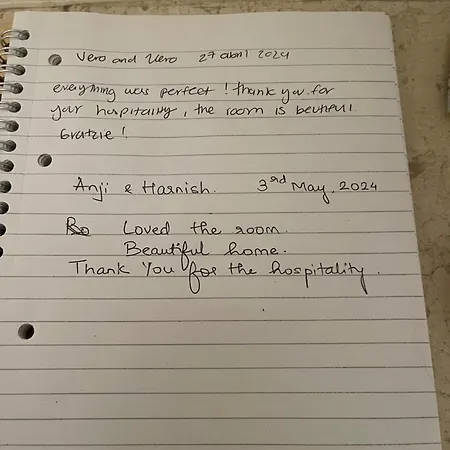 Vero and Vero 27 abril 2024
everything was perfect! thank you for
your hospitality, the room is beutifull
Gratzie!
Anji & Harnish. 3rd May, 2024
Loved the room.
Beautiful home.
Thank You for the hospitality.